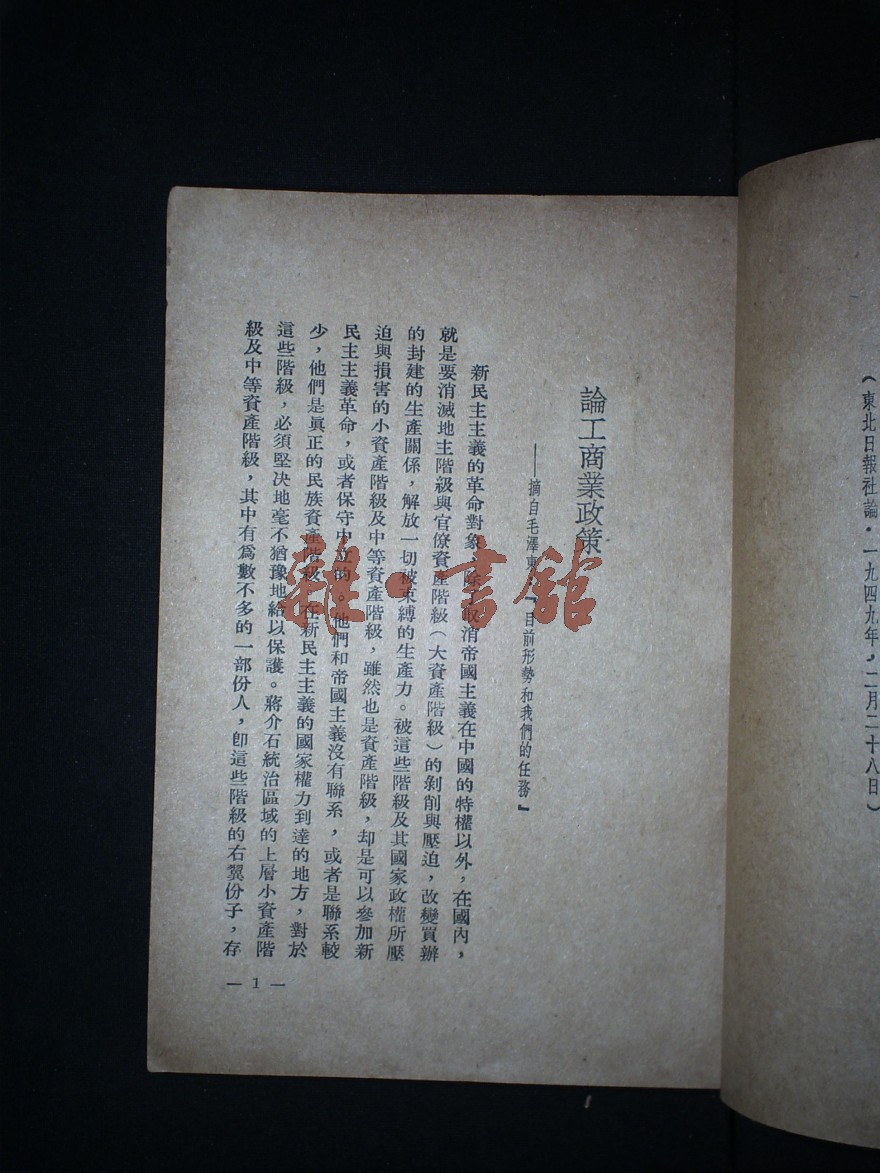 （東北日報社論·一九四九年，二月二十八日）
論工商業政策
——摘自毛澤東『目前形勢和我們的任務』
新民主主義的革命對象，除了取消帝國主義在中國的特權以外，在國內，
就是要消滅地主階級與官僚資產階級（大資產階級）的剝削與壓迫，改變買辦
的封建的生產關係，解放一切被束縛的生產力。被這些階級及其國家政權所壓
迫與損害的小資產階級及中等資產階級，雖然也是資產階級，却是可以參加新
民主主義革命，或者保守中立的。他們和帝國主義沒有聯系，或者是聯系較
少，他們是眞正的民族資產階級。在新民主主義的國家權力到達的地方，對於
這些階級，必須堅决地毫不猶豫地給以保護。蔣介石統治區域的上層小資產階
級及中等資產階級，其中有爲數不多的一部份人，卽這些階級的右翼份子，存
— 1 —
雜·書舘